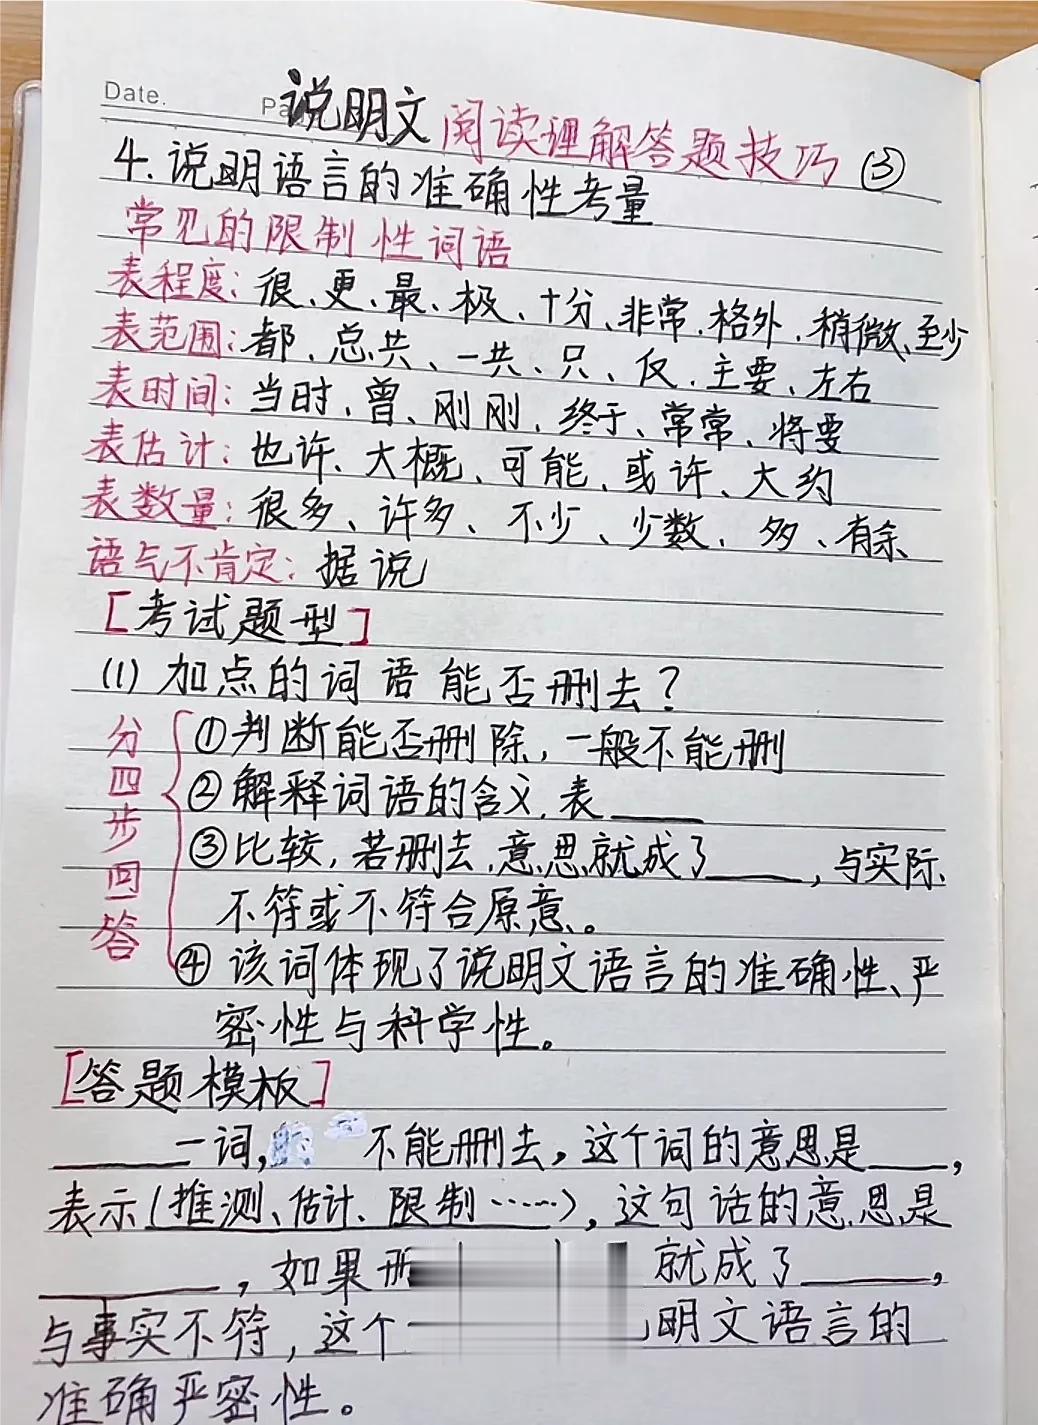 Date.
Pa
说明文阅读理解答题技巧③
4.说明语言的准确性考量
常见的限制性词语
表程度:很、更、最、极、十分、非常、格外、稍微、至少
表范围:都、总共、一共、只、仅、主要、左右
表时间:当时、曾、刚刚、终于、常常、将要
表估计:也许、大概、可能、或许、大约
表数量:很多、许多、不少、少数、多、有余
语气不肯定:据说
[考试题型]
(1)加点的词语能否删去?
分四步回答
①判断能否删除,一般不能删
②解释词语的含义,表____
③比较,若删去,意思就成了____,与实际
不符或不符合原意。
④该词体现了说明文语言的准确性、严
密性与科学性。
[答题模板]
____一词, 不能删去,这个词的意思是____,
表示(推测、估计、限制……),这句话的意思是
____,如果删 就成了____,
与事实不符,这个 明文语言的
准确严密性。